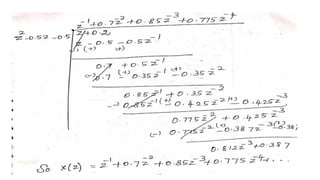 z⁻¹+0.7z⁻²+0.85z⁻³+0.775z⁻⁴
z²-0.5z-0.5 z+0.2
z-0.5-0.5z⁻¹
(-) (+) (+)
0.7+0.5z⁻¹
(-)0.7 (+)0.35z⁻¹ (+)0.35z⁻²
0.85z⁻¹+0.35z⁻²
(-)0.85z⁻¹(+)0.425z⁻²(+)0.425z⁻³
0.775z⁻²+0.425z⁻³
(-)0.775z⁻²(+)0.387z⁻³(+)0.38
0.812z⁻³+0.387
So x(z)=z⁻¹+0.7z⁻²+0.85z⁻³+0.775z⁻⁴+...